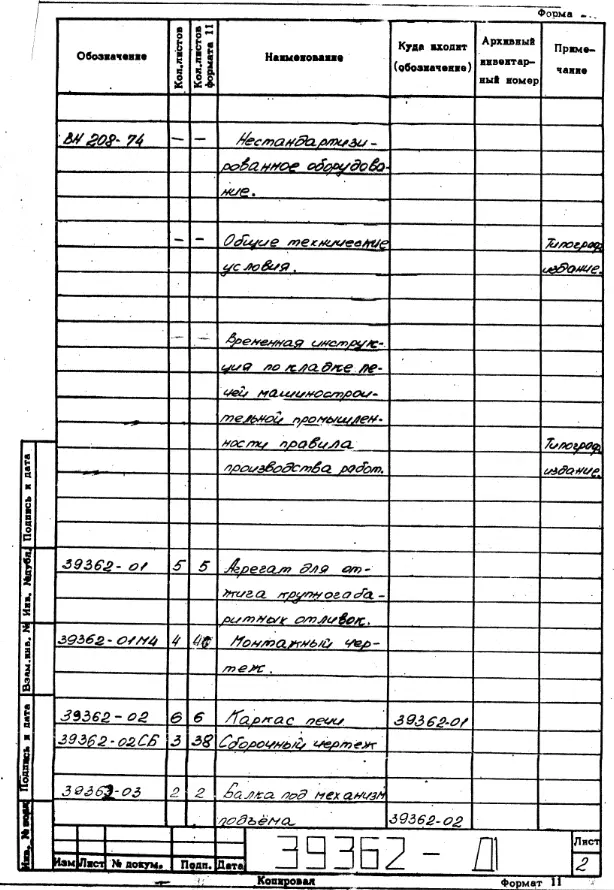 Форма
Обозначение Кол.листов Кол.листов формата 11 Наименование Куда входит (обозначение) Архивный инвентар- ный номер Приме- чание
ВН 208-74 — — Нестандартизи-
рованное оборудова-
ние.
— — Общие технические Типограф.
условия. издание.
— — Временная инструк-
ция по кладке пе-
чей машинострои-
тельной промышлен-
ности правила Типограф.
производства работ. издание.
39362-01 5 5 Агрегат для от-
жига крупногаба-
ритных отливок.
39362-01МЧ 4 Монтажный чер-
теж.
39362-02 6 6 Каркас печи 39362-01
39362-02СБ 3 38 Сборочный чертеж
39362-03 2 2 Балка под механизм
подъёма 39362-02
Подпись и дата
Инв. №дубл.
Взам.инв. №
Подпись и дата
Инв. № подл.
Изм Лист № докум. Подп. Дата
39362-Д1
Лист
2
Копировал Формат 11